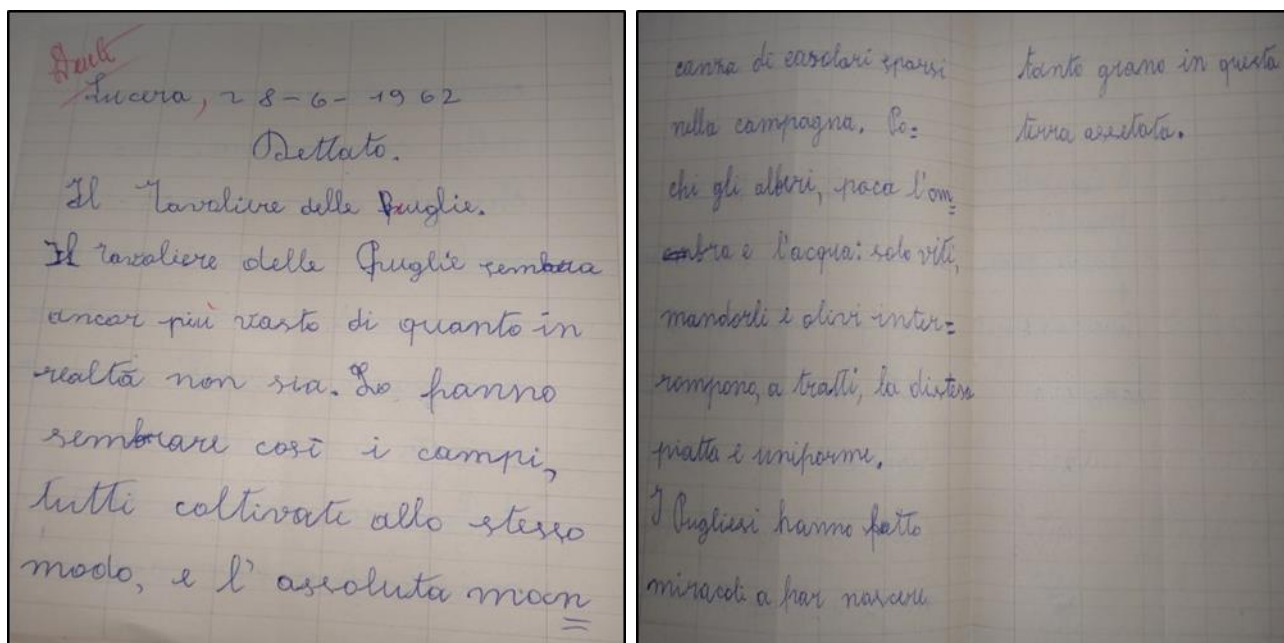 Lucera, 28-6-1962
Dettato.
Il Tavoliere delle Puglie.
Il Tavoliere delle Puglie sembra
ancor più vasto di quanto in
realtà non sia. Lo fanno
sembrare così i campi,
tutti coltivati allo stesso
modo, e l'assoluta man=
canza di casolari sparsi
nella campagna. Po=
chi gli alberi, poca l'om=
bra e l'acqua: solo viti,
mandorli e olivi inter=
rompono, a tratti, la distesa
piatta e uniforme.
I Pugliesi hanno fatto
miracoli a far nascere
tanto grano in questa
terra assetata.